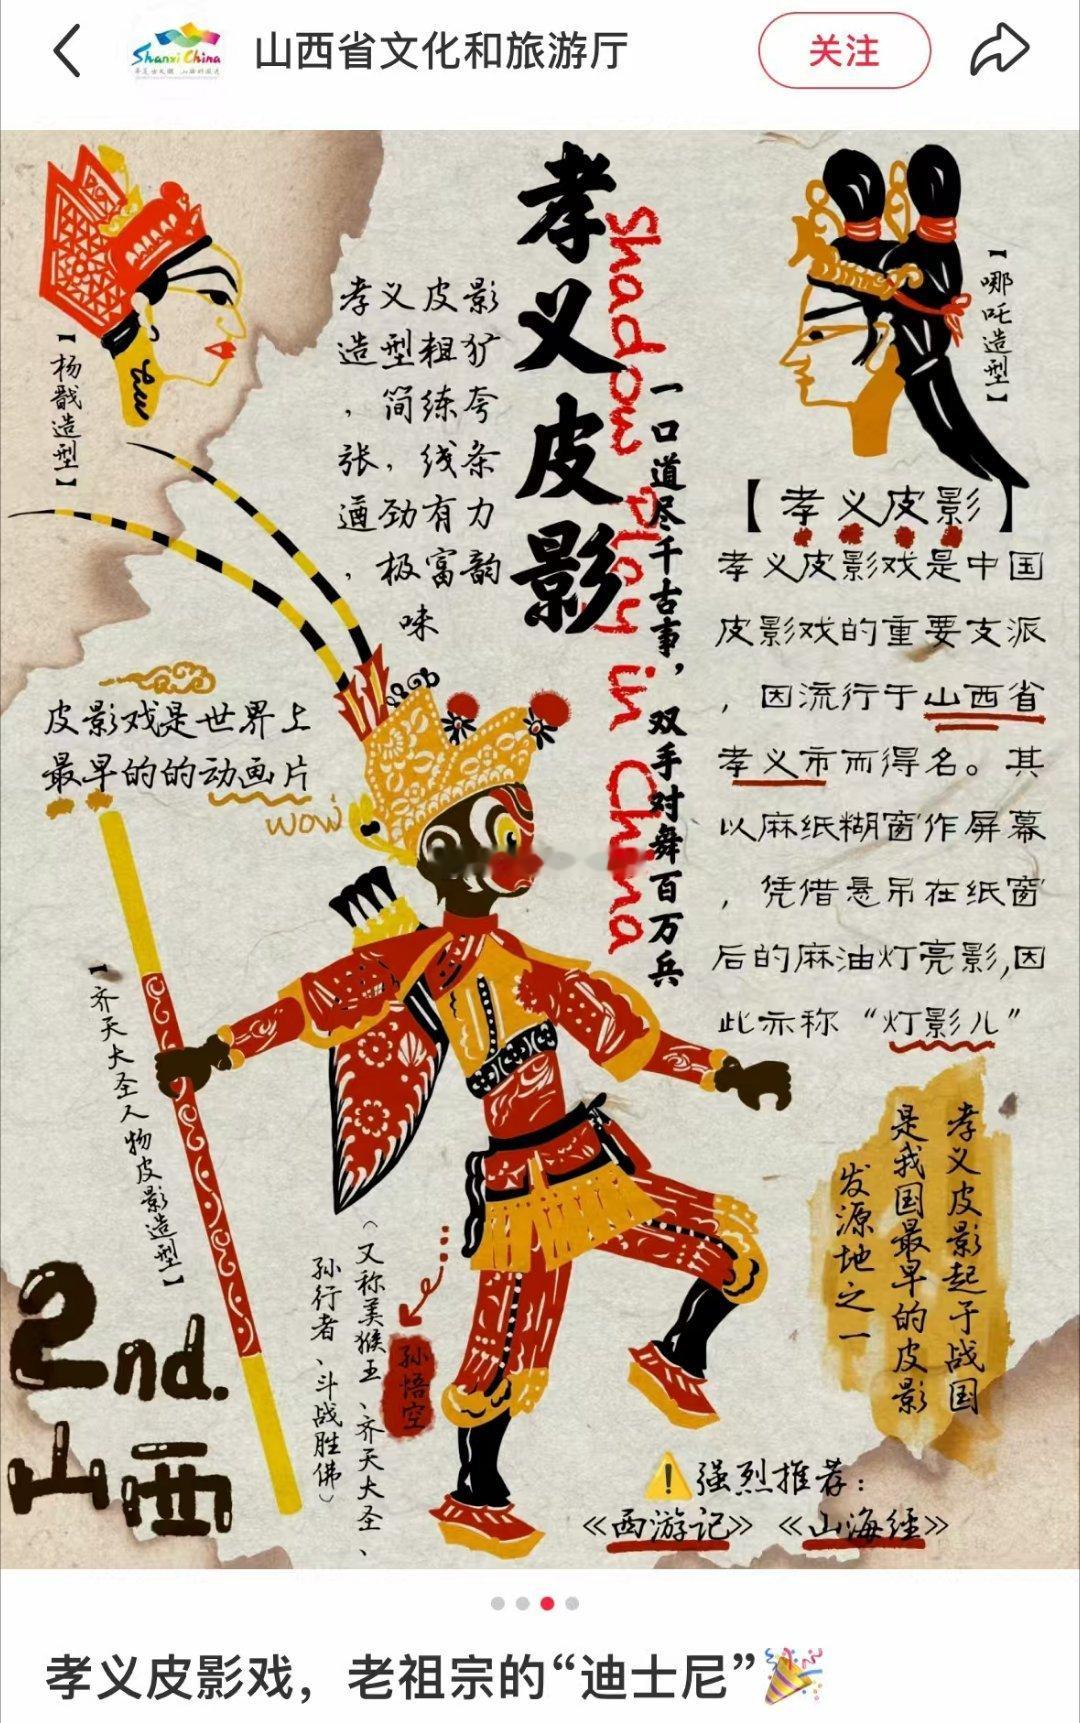 Shanxi China
山西省文化和旅游厅
关注
孝义皮影
Shadow Play in China
一口道尽千古事，双手对舞百万兵
【杨戬造型】
孝义皮影
造型粗犷
，简练夸
张，线条
遒劲有力
，极富韵
味
【哪吒造型】
【孝义皮影】
孝义皮影戏是中国
皮影戏的重要支派
，因流行于山西省
孝义市而得名。其
以麻纸糊窗作屏幕
，凭借悬吊在纸窗
后的麻油灯亮影,因
此亦称“灯影儿”
皮影戏是世界上
最早的的动画片
wow!
【齐天大圣人物皮影造型】
孙悟空
（又称美猴王、齐天大圣、
孙行者、斗战胜佛）
孝义皮影起于战国
是我国最早的皮影
发源地之一
2nd.
山西
强烈推荐：
《西游记》《山海经》
孝义皮影戏，老祖宗的“迪士尼”